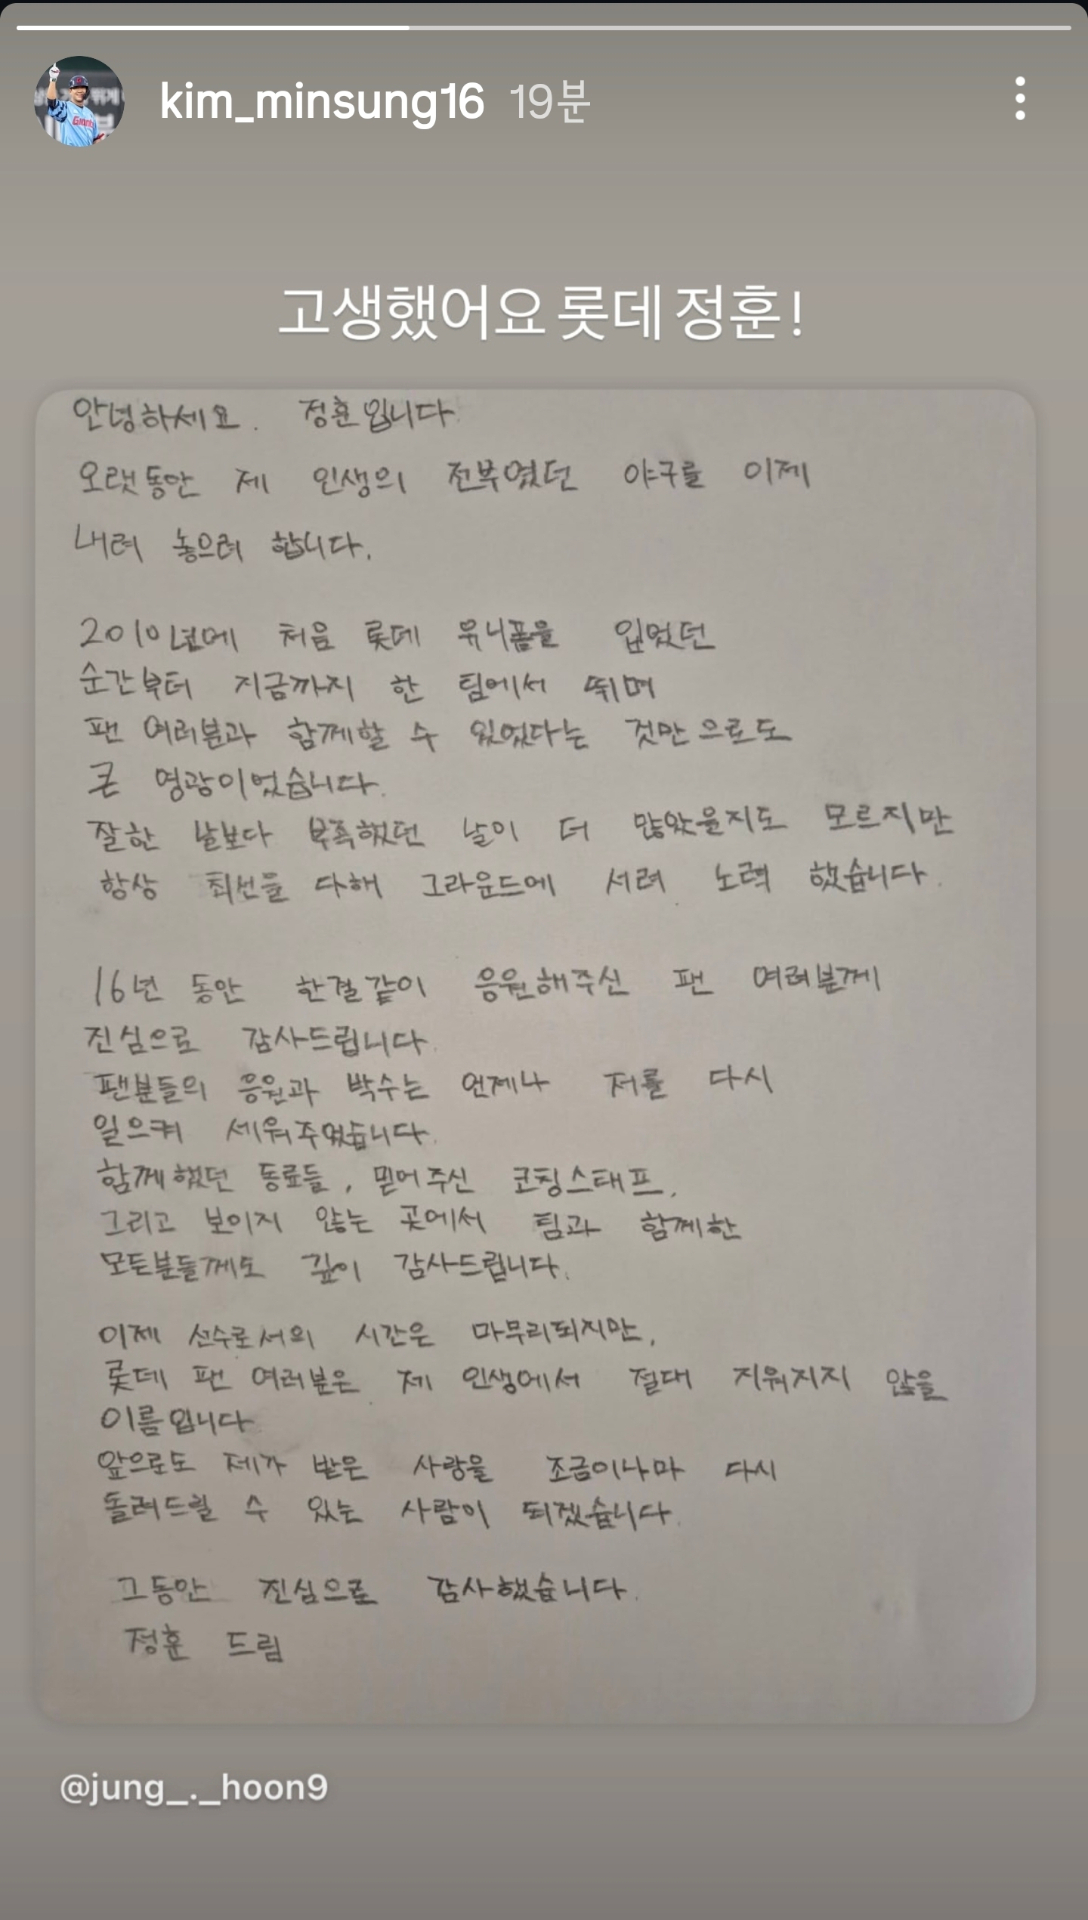 kim_minsung16 19분
고생했어요 롯데 정훈!
안녕하세요. 정훈입니다.
오랫동안 제 인생의 전부였던 야구를 이제
내려 놓으려 합니다.
2010년에 처음 롯데 유니폼을 입었던
순간부터 지금까지 한 팀에서 뛰며
팬 여러분과 함께할 수 있었다는 것만으로도
큰 영광이었습니다.
잘한 날보다 부족했던 날이 더 많았을지도 모르지만
항상 최선을 다해 그라운드에 서려 노력 했습니다.
16년 동안 한결같이 응원해주신 팬 여러분께
진심으로 감사드립니다.
팬분들의 응원과 박수는 언제나 저를 다시
일으켜 세워주었습니다.
함께했던 동료들, 믿어주신 코칭스태프,
그리고 보이지 않는 곳에서 팀과 함께한
모든분들께도 깊이 감사드립니다.
이제 선수로서의 시간은 마무리되지만,
롯데 팬 여러분은 제 인생에서 절대 지워지지 않을
이름입니다
앞으로도 제가 받은 사랑을 조금이나마 다시
돌려드릴 수 있는 사람이 되겠습니다.
그동안 진심으로 감사했습니다.
정훈 드림
@jung_._hoon9